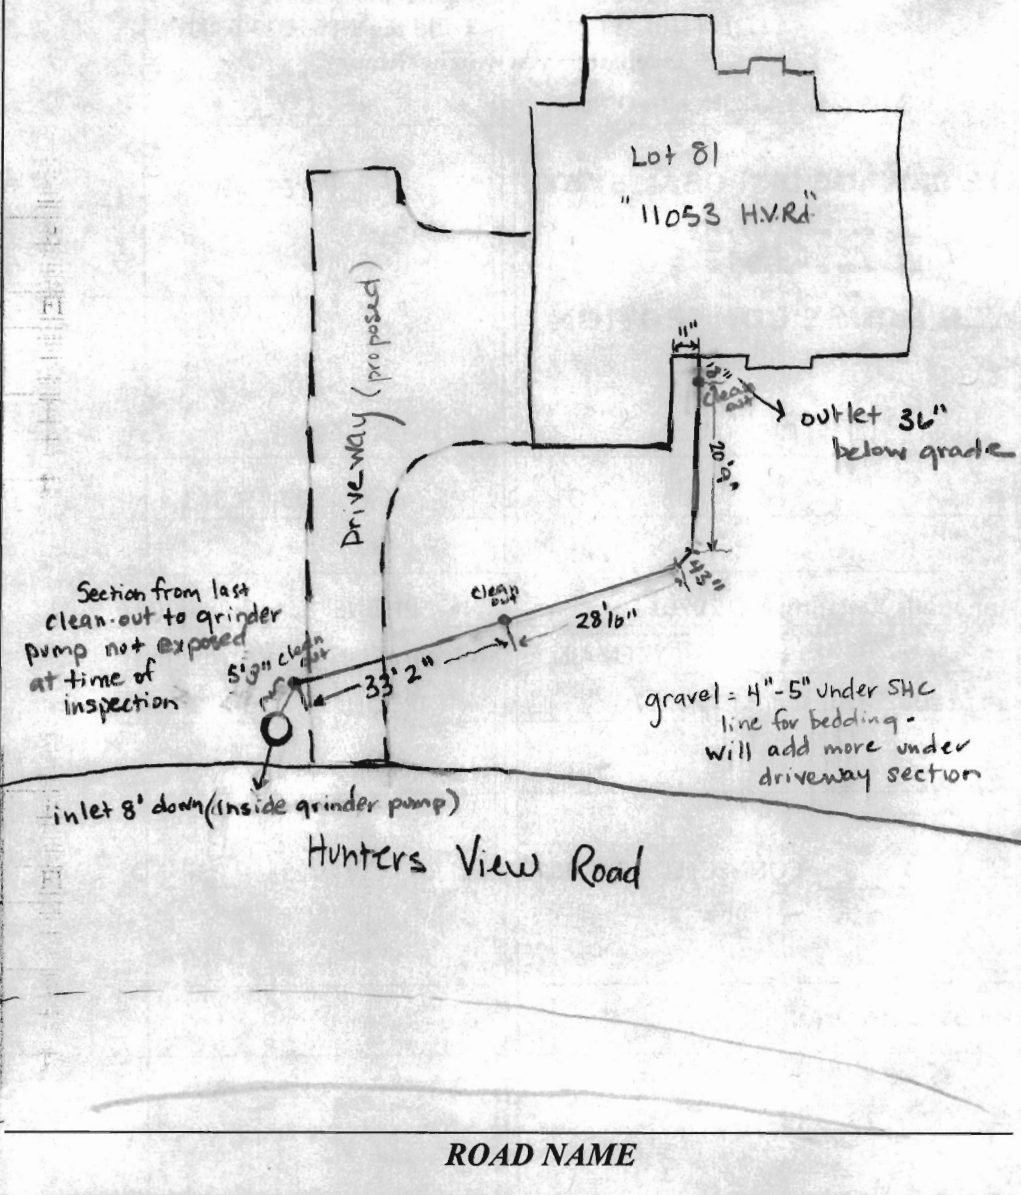 Lot 81
"11053 H.V.Rd"
Driveway (proposed)
11"
clean
out
outlet 36"
below grade
20'9"
43"
clean
out
28'10"
Section from last
clean-out to grinder
pump not exposed
at time of
inspection
5'9"
clean
out
33' 2"
gravel = 4"-5" under SHC
line for bedding -
will add more under
driveway section
inlet 8' down (inside grinder pump)
Hunters View Road
ROAD NAME